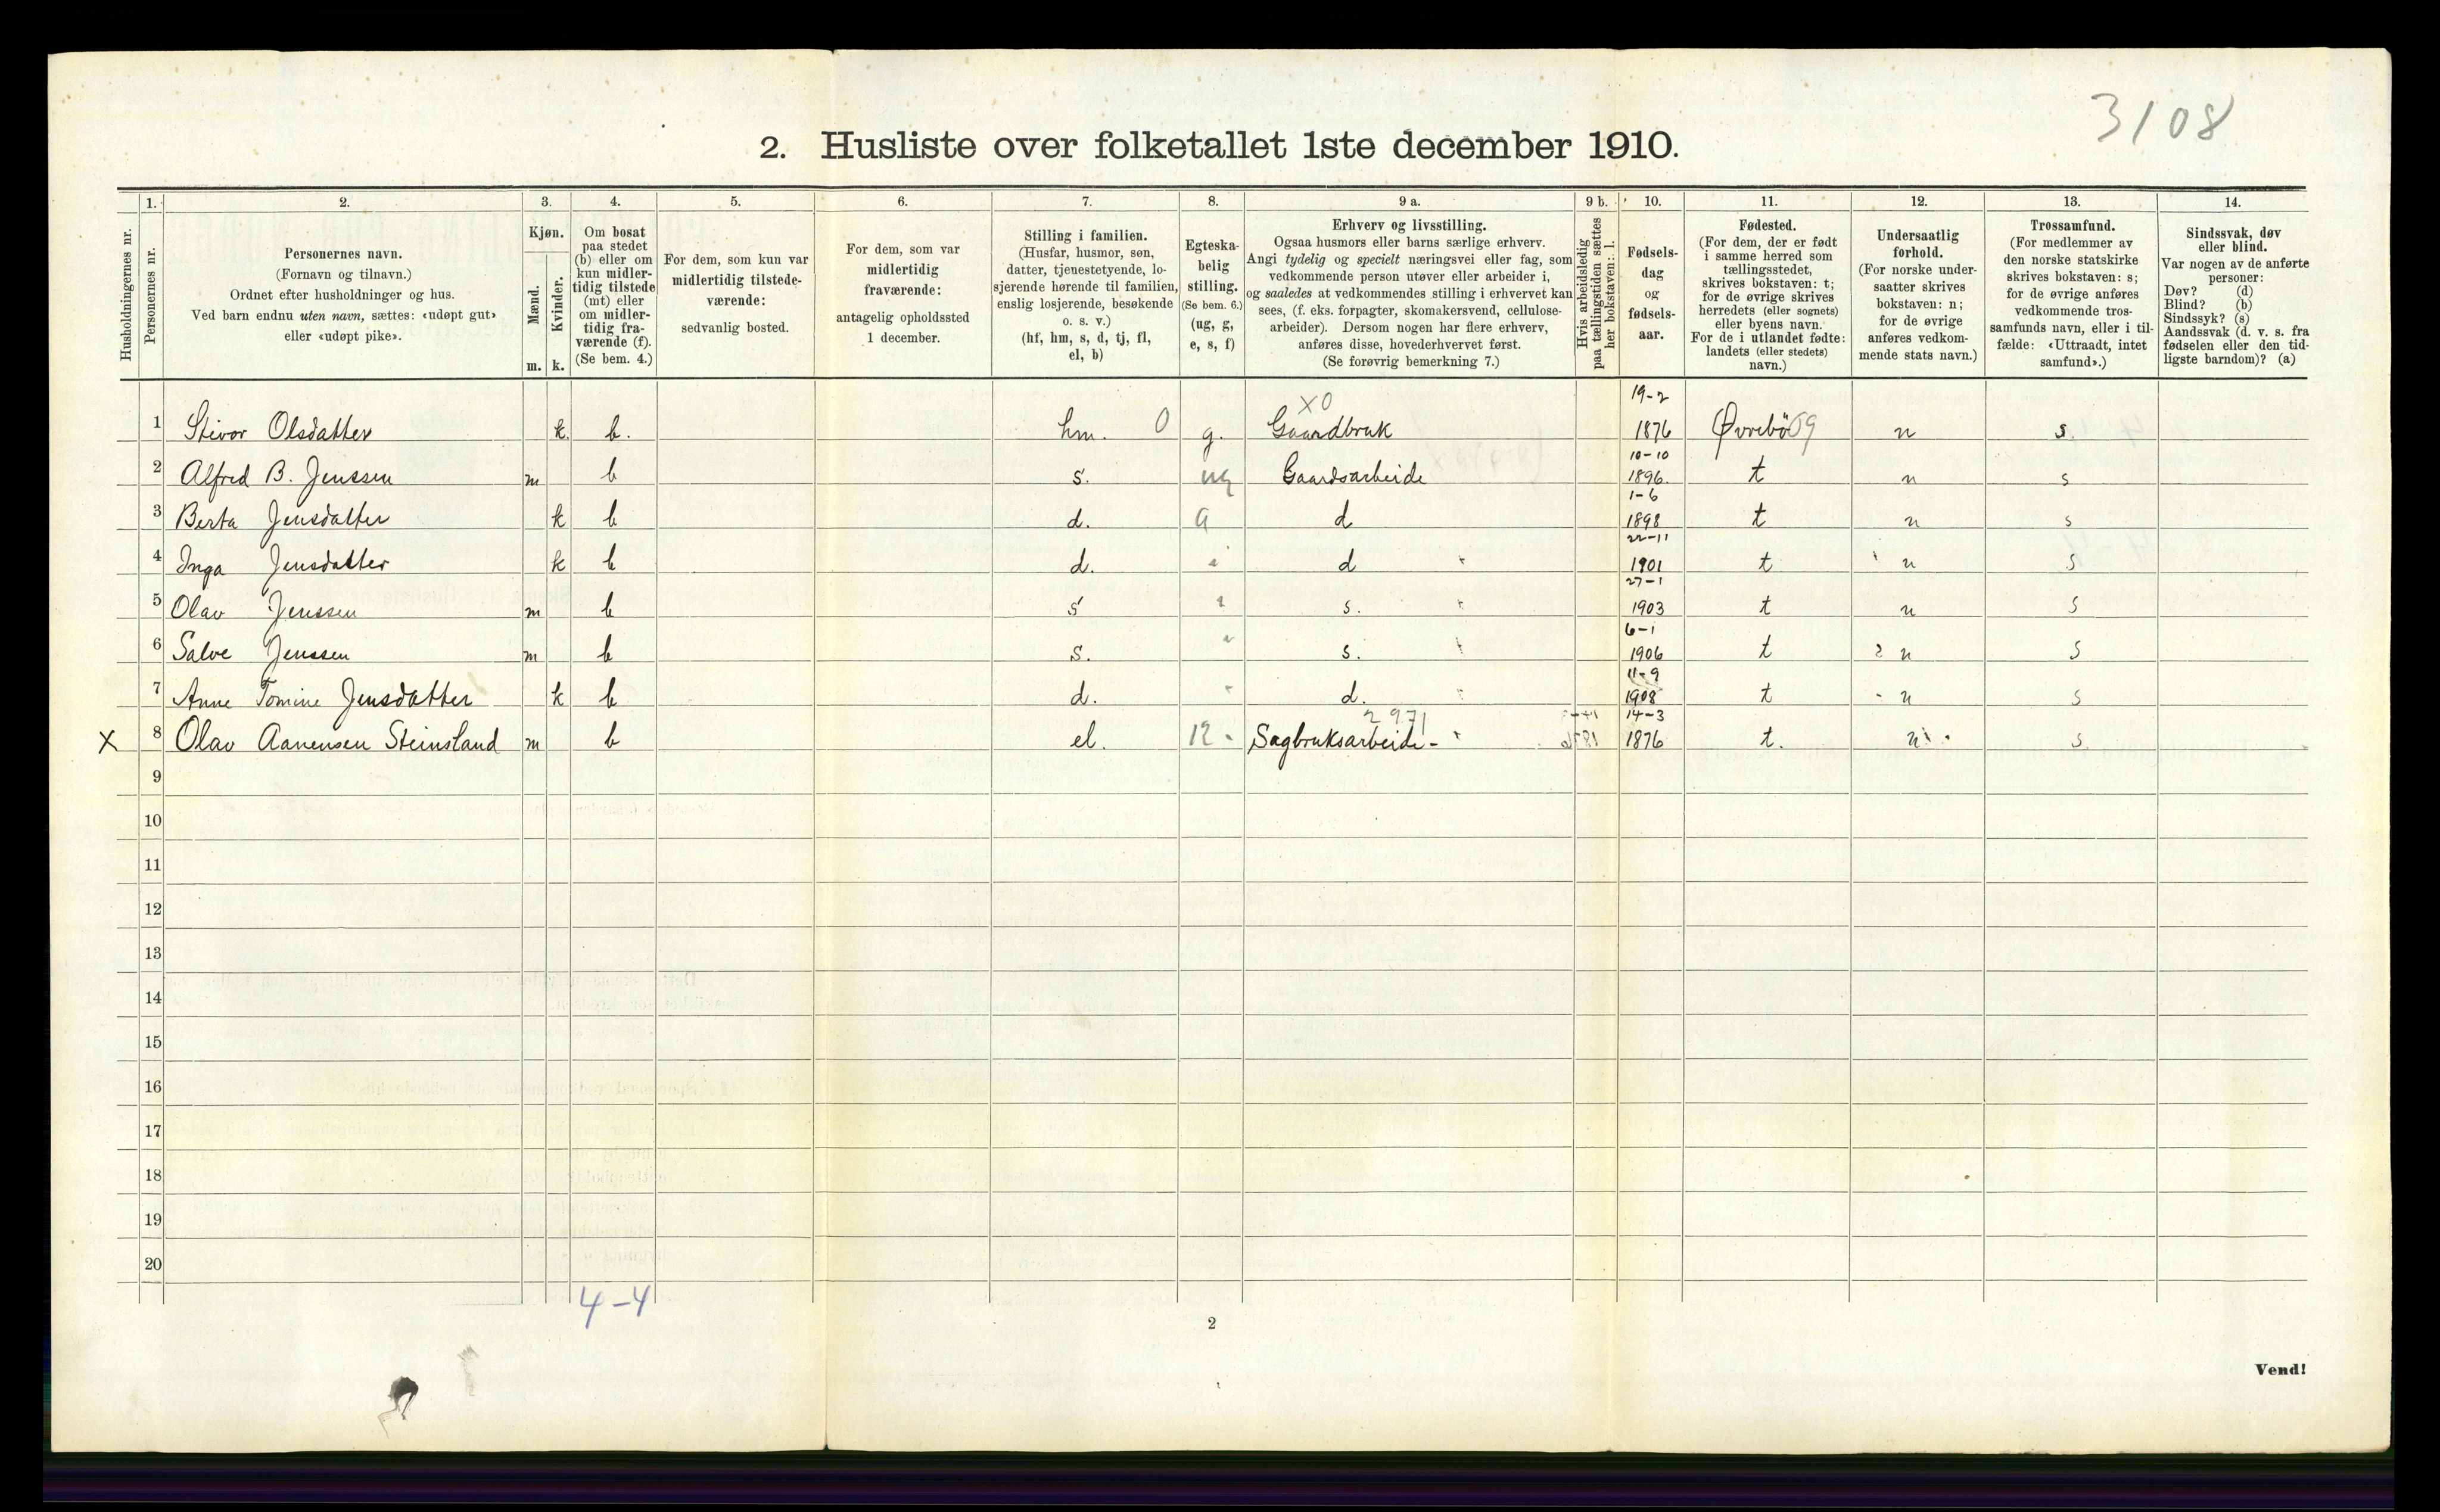 3108
2. Husliste over folketallet 1ste december 1910.
Husholdningernes nr.
1.
Personernes nr.
2.
Personernes navn.
(Fornavn og tilnavn.)
Ordnet efter husholdninger og hus.
Ved barn endnu uten navn, sættes: «udøpt gut»
eller «udøpt pike».
3.
Kjøn.
Mænd.
Kvinder.
m. k.
4.
Om bosat
paa stedet
(b) eller om
kun midler-
tidig tilstede
(mt) eller
om midler-
tidig fra-
værende (f).
(Se bem. 4.)
5.
For dem, som kun var
midlertidig tilstede-
værende:
sedvanlig bosted.
6.
For dem, som var
midlertidig
fraværende:
antagelig opholdssted
1 december.
7.
Stilling i familien.
(Husfar, husmor, søn,
datter, tjenestetyende, lo-
sjerende hørende til familien,
enslig losjerende, besøkende
o. s. v.)
(hf, hm, s, d, tj, fl,
el, b)
8.
Egteska-
belig
stilling.
(Se bem. 6.)
(ug, g,
e, s, f)
9 a.
Erhverv og livsstilling.
Ogsaa husmors eller barns særlige erhverv.
Angi tydelig og specielt næringsvei eller fag, som
vedkommende person utøver eller arbeider i,
og saaledes at vedkommendes stilling i erhvervet kan
sees, (f. eks. forpagter, skomakersvend, cellulose-
arbeider). Dersom nogen har flere erhverv,
anføres disse, hovederhvervet først.
(Se forøvrig bemerkning 7.)
9 b.
Hvis arbeidsledig
paa tællingstiden sættes
her bokstaven: l.
10.
Fødsels-
dag
og
fødsels-
aar.
11.
Fødested.
(For dem, der er født
i samme herred som
tællingsstedet,
skrives bokstaven: t;
for de øvrige skrives
herredets (eller sognets)
eller byens navn.
For de i utlandet fødte:
landets (eller stedets)
navn.)
12.
Undersaatlig
forhold.
(For norske under-
saatter skrives
bokstaven: n;
for de øvrige
anføres vedkom-
mende stats navn.)
13.
Trossamfund.
(For medlemmer av
den norske statskirke
skrives bokstaven: s;
for de øvrige anføres
vedkommende tros-
samfunds navn, eller i til-
fælde: «Uttraadt, intet
samfund».)
14.
Sindssvak, døv
eller blind.
Var nogen av de anførte
personer:
Døv? (d)
Blind? (b)
Sindssyk? (s)
Aandssvak (d. v. s. fra
fødselen eller den tid-
ligste barndom)? (a)
XO 19-2
1 Stivor Olsdatter k. b. hm. 0 g. Gaardbruk 1876 Øvrebö 59 n s.
10-10
2 Alfred B. Jenssen m b s. ug Gaardsarbeide 1896. t n s
1-6
3 Berta Jensdatter k b d. d 1898 t n s
22-11
4 Inga Jensdatter k b d. d 1901 t n s
27-1
5 Olav Jenssen m b s s. 1903 t n s
6-1
6 Salve Jenssen m b s. s. 1906 t n s
11-9
7 Anne Tomine Jensdatter k b d. d. 1908 t n s
2971 14-3
X 8 Olav Aanensen Steinsland m b el. Sagbruksarbeide- 1876 t. n s.
9
10
11
12
13
14
15
16
17
18
19
20
4-4
2
Vend!